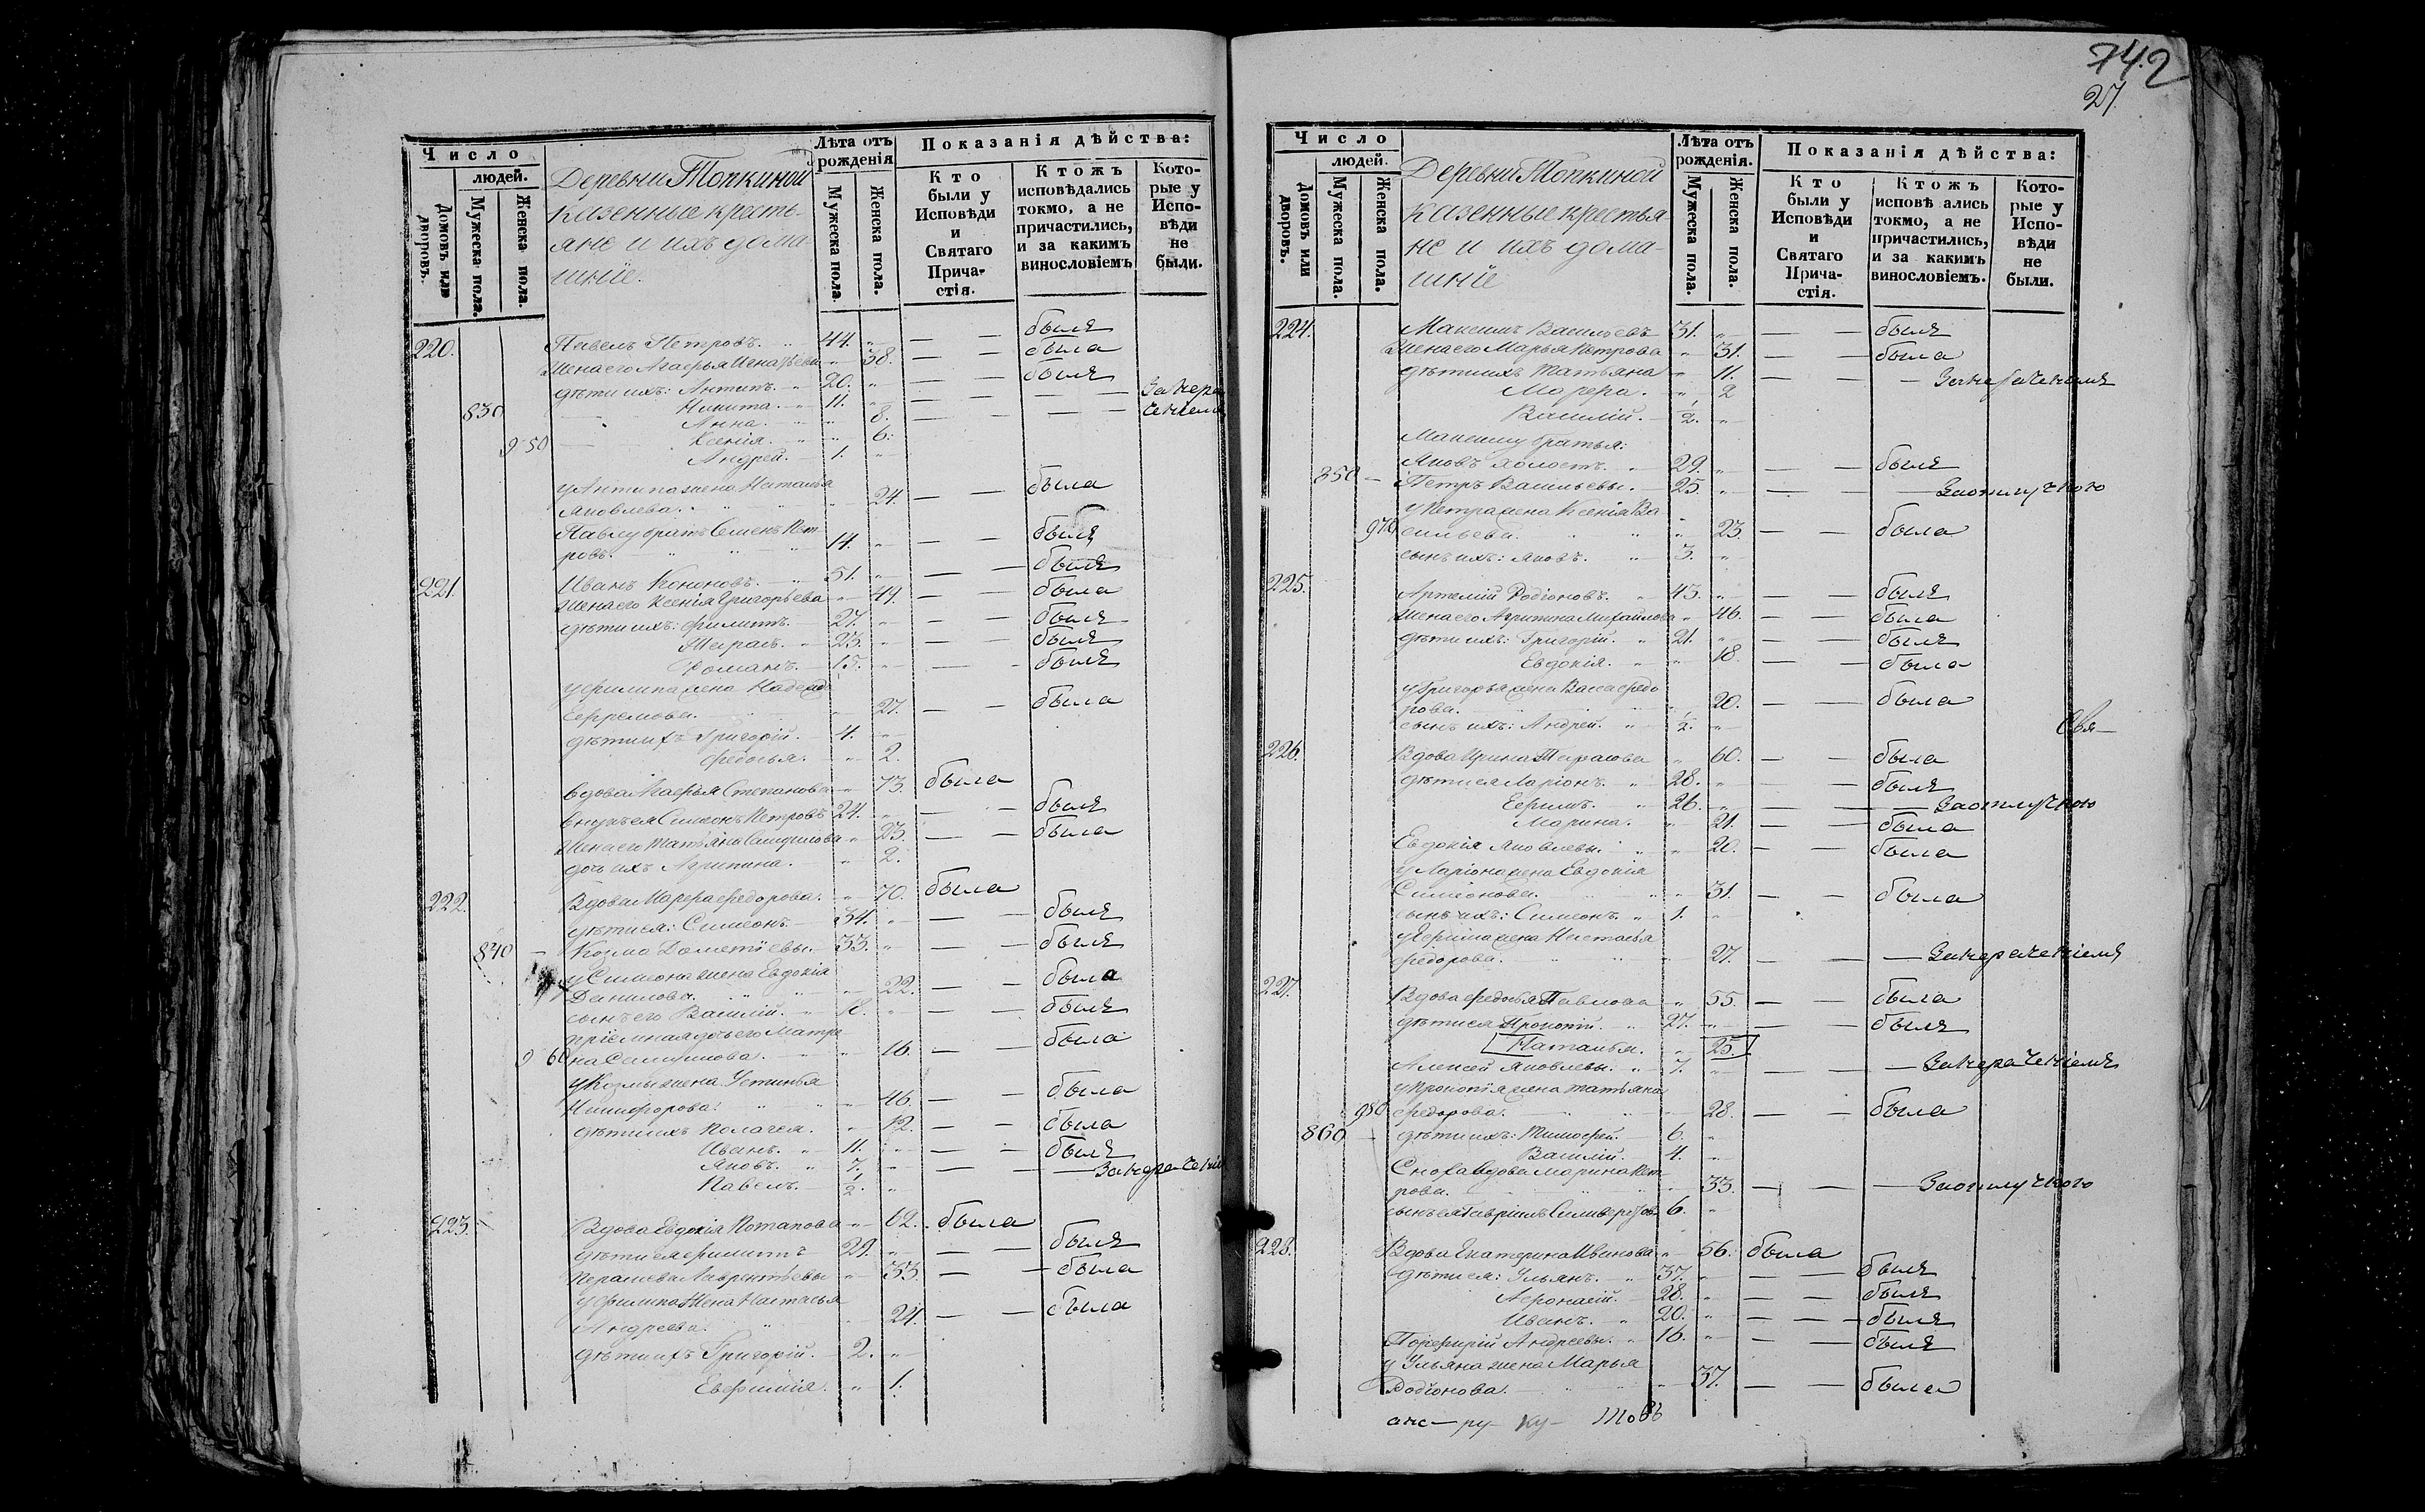 742
27.
Число
людей.
Домовъ или дворовъ.
Мужеска пола.
Женска пола.
Деревни Топкиной
казенные кресть-
яне и ихъ дома-
шніе.
Лѣта отъ рожденія
Мужеска пола.
Женска пола.
Показанія дѣйства:
Кто были у Исповѣди и Святаго Прича-стія.
Ктожъ исповѣдались токмо, а не причастились, и за какимъ винословіемъ
Кото-рые у Испо-вѣди не были.
220. Павелъ Петровъ. 44. — — былъ
Жена его Агафья Игнатьева 38. — — была
дѣти ихъ: Антипъ. 20. — — былъ
830 Никита. 11. — — — — За мало
Анна. 8. — — — —
950 Ксенія. 6.
Андрей. 1.
у Антипа жена Наталья
Яковлева. 24. — — была
Павлу братъ Семенъ Пет-
ровъ. 14. — — былъ
221. Иванъ Кононовъ. 51. — — былъ
Жена его Ксенія Григорьева 49. — — была
дѣти ихъ: Филиппъ. 27. — — былъ
Тарасъ. 23. — — былъ
Романъ. 15. — — былъ
у Филипа жена Надежда
Ефремова. 27. — — была
дѣти ихъ Григорій. 4.
Федосья. 2.
вдова Агафья Степанова 73. была
внукъ ея Симеонъ Петровъ 24. — — былъ
Жена его Татьяна Самуилова 23. — — была
дочь ихъ Агрипина. 2.
222. Вдова Марфа Федорова. 70. была
дѣти ея: Симеонъ 34. — — былъ
840 Козма Дометіевы. 33. — — былъ
у Симеона жена Евдокія
Данилова. 22. — — была
сынъ его Василій. 8. — — былъ
пріемная дочь его Матре-
960 на Самуилова. 16. — — была
у Козмы жена Устинья
Никифорова. 46. — — была
дѣти ихъ Пелагея. 12. — — была
Иванъ. 11. — — былъ
Яковъ. 7. — — —
Павелъ. 1/2.
223. Вдова Евдокія Потапова 62. была
дѣти ея Филиппъ 29. — — былъ
Параскева Лаврентьевы 33. — — была
у Филипа жена Настасья
Андреева. 24. — — была
дѣти ихъ Григорій. 2.
Евфимія. 1.
Число
людей.
Домовъ или дворовъ.
Мужеска пола.
Женска пола.
Деревни Топкиной
казенные крестья-
не и ихъ дома-
шніе
Лѣта отъ рожденія.
Мужеска пола.
Женска пола.
Показанія дѣйства:
Кто были у Исповѣди и Святаго Прича-стія.
Ктожъ исповѣ ались токмо, а не причастились, и за какимъ винословіемъ.
Кото-рые у Испо-вѣди не были.
224. Максимъ Васильевъ 31. — — былъ
Жена его Марья Петрова 31. — — была
дѣти ихъ Татьяна 11. — — —
Марфа. 2
Василій. 1/2.
Максиму братья:
Яковъ холостъ. 29. — — былъ
850 Петръ Васильевы. 25. — — — За отлучкою
у Петра жена Ксенія Ва-
970 сильева. 23. — — была
сынъ ихъ: Яковъ. 3.
225. Артемій Родіоновъ. 43. — — былъ
Жена его Агрипина Михайлова 46. — — была
дѣти ихъ: Григорій. 21. — — былъ
Евдокія. 18. — — была
у Григорья жена Васса Федо-
рова. 20. — — была
сынъ ихъ: Андрей. 1/2.
Свя-
226. Вдова Ирина Тарасова 60. — — была
дѣти ея Ларіонъ. 28. — — былъ
Ефимъ. 26. — — — За отлучкою
Марина. 21. — — была
Евдокія Яковлевы. 20. — — была
у Ларіона жена Евдокія
Симеонова. 31. — — была
сынъ ихъ: Симеонъ. 1.
у Ефима жена Настасья
Федорова. 27. — — —
227. Вдова Федосья Павлова 55. — — была
дѣти ея Прокопій. 27. — — былъ
Наталья. 25.
Алексей Яковлевы. 7. — — —
у Прокопія жена Татьяна
980 Федорова. 28. — — была
860 дѣти ихъ: Тимофей. 6.
Василій. 4.
Сноха вдова Марина Пет-
рова. 33. — — — За отлучкою
сынъ ея Гавриилъ 6.
228. Вдова Екатерина Иванова 56. была
дѣти ея: Ульянъ. 37. — — былъ
Афонасій. 28. — — былъ
Иванъ. 20. — — — былъ
Порфирій Андреевы. 16. — — былъ
у Ульяна жена Марья
Родіонова. 37. — — была
ру- ку-